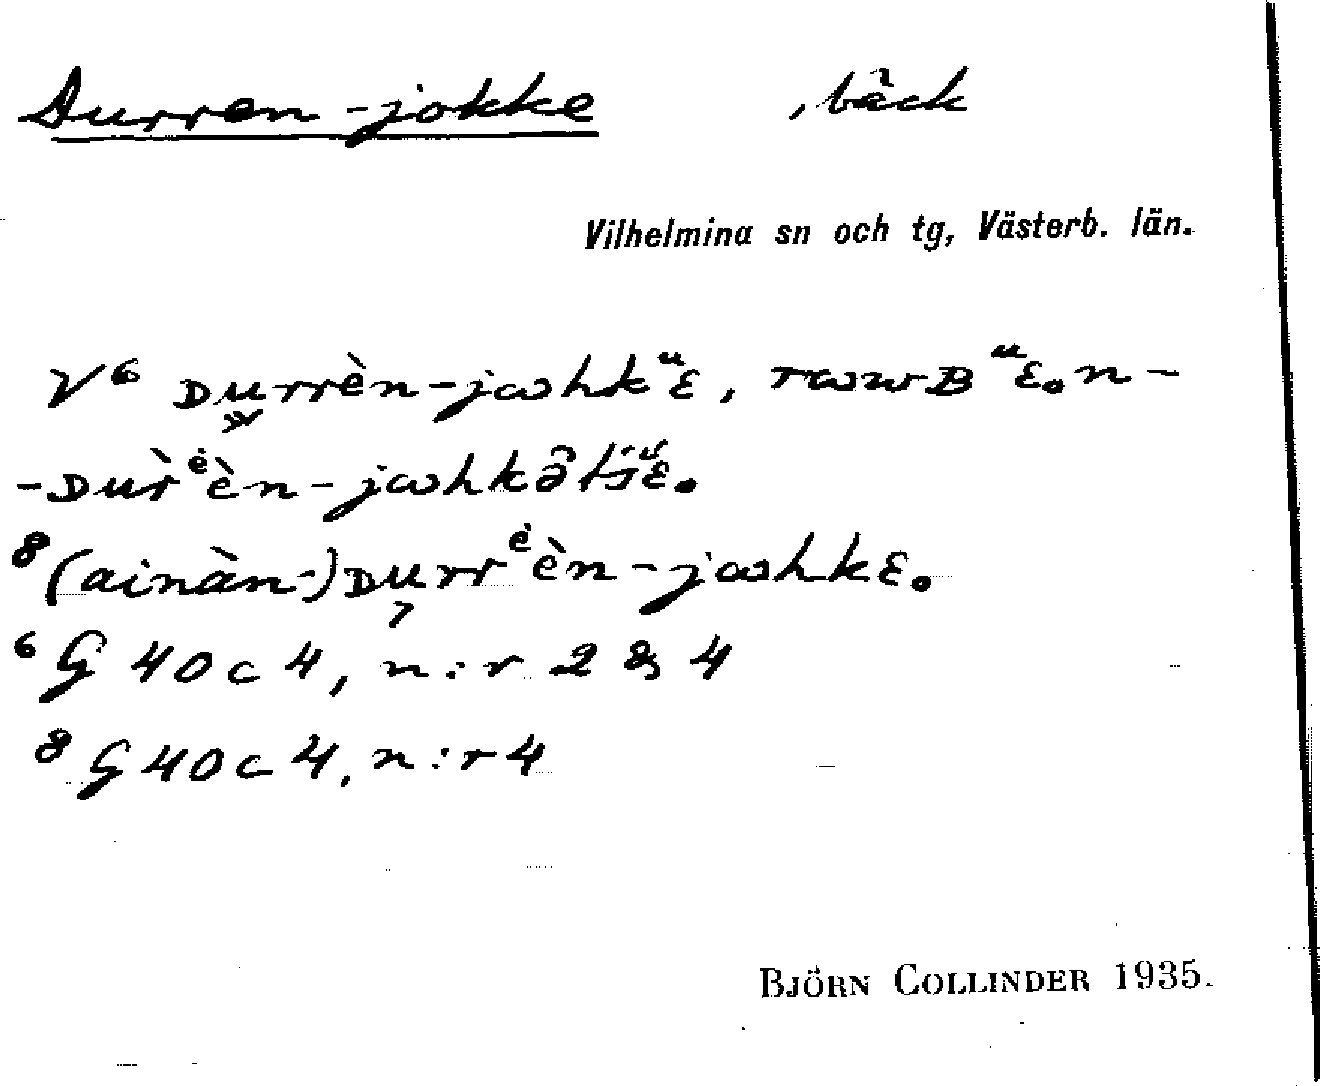 Durren-jokke , bäck
Vilhelmina sn och tg, Västerb. län.
V⁶ ᴅurrèn-jωhkᵘε, rωwʙᵘε.n-
-ᴅur̀ᵉ̇èn-jωhkə̂tšᵘε.
⁸(ainàn-)ᴅurrᵉ̇èn-jωhkε.
⁶ G 40c4, n:r 2 & 4
⁸ G 40c4, n:r 4
BJÖRN COLLINDER 1935.